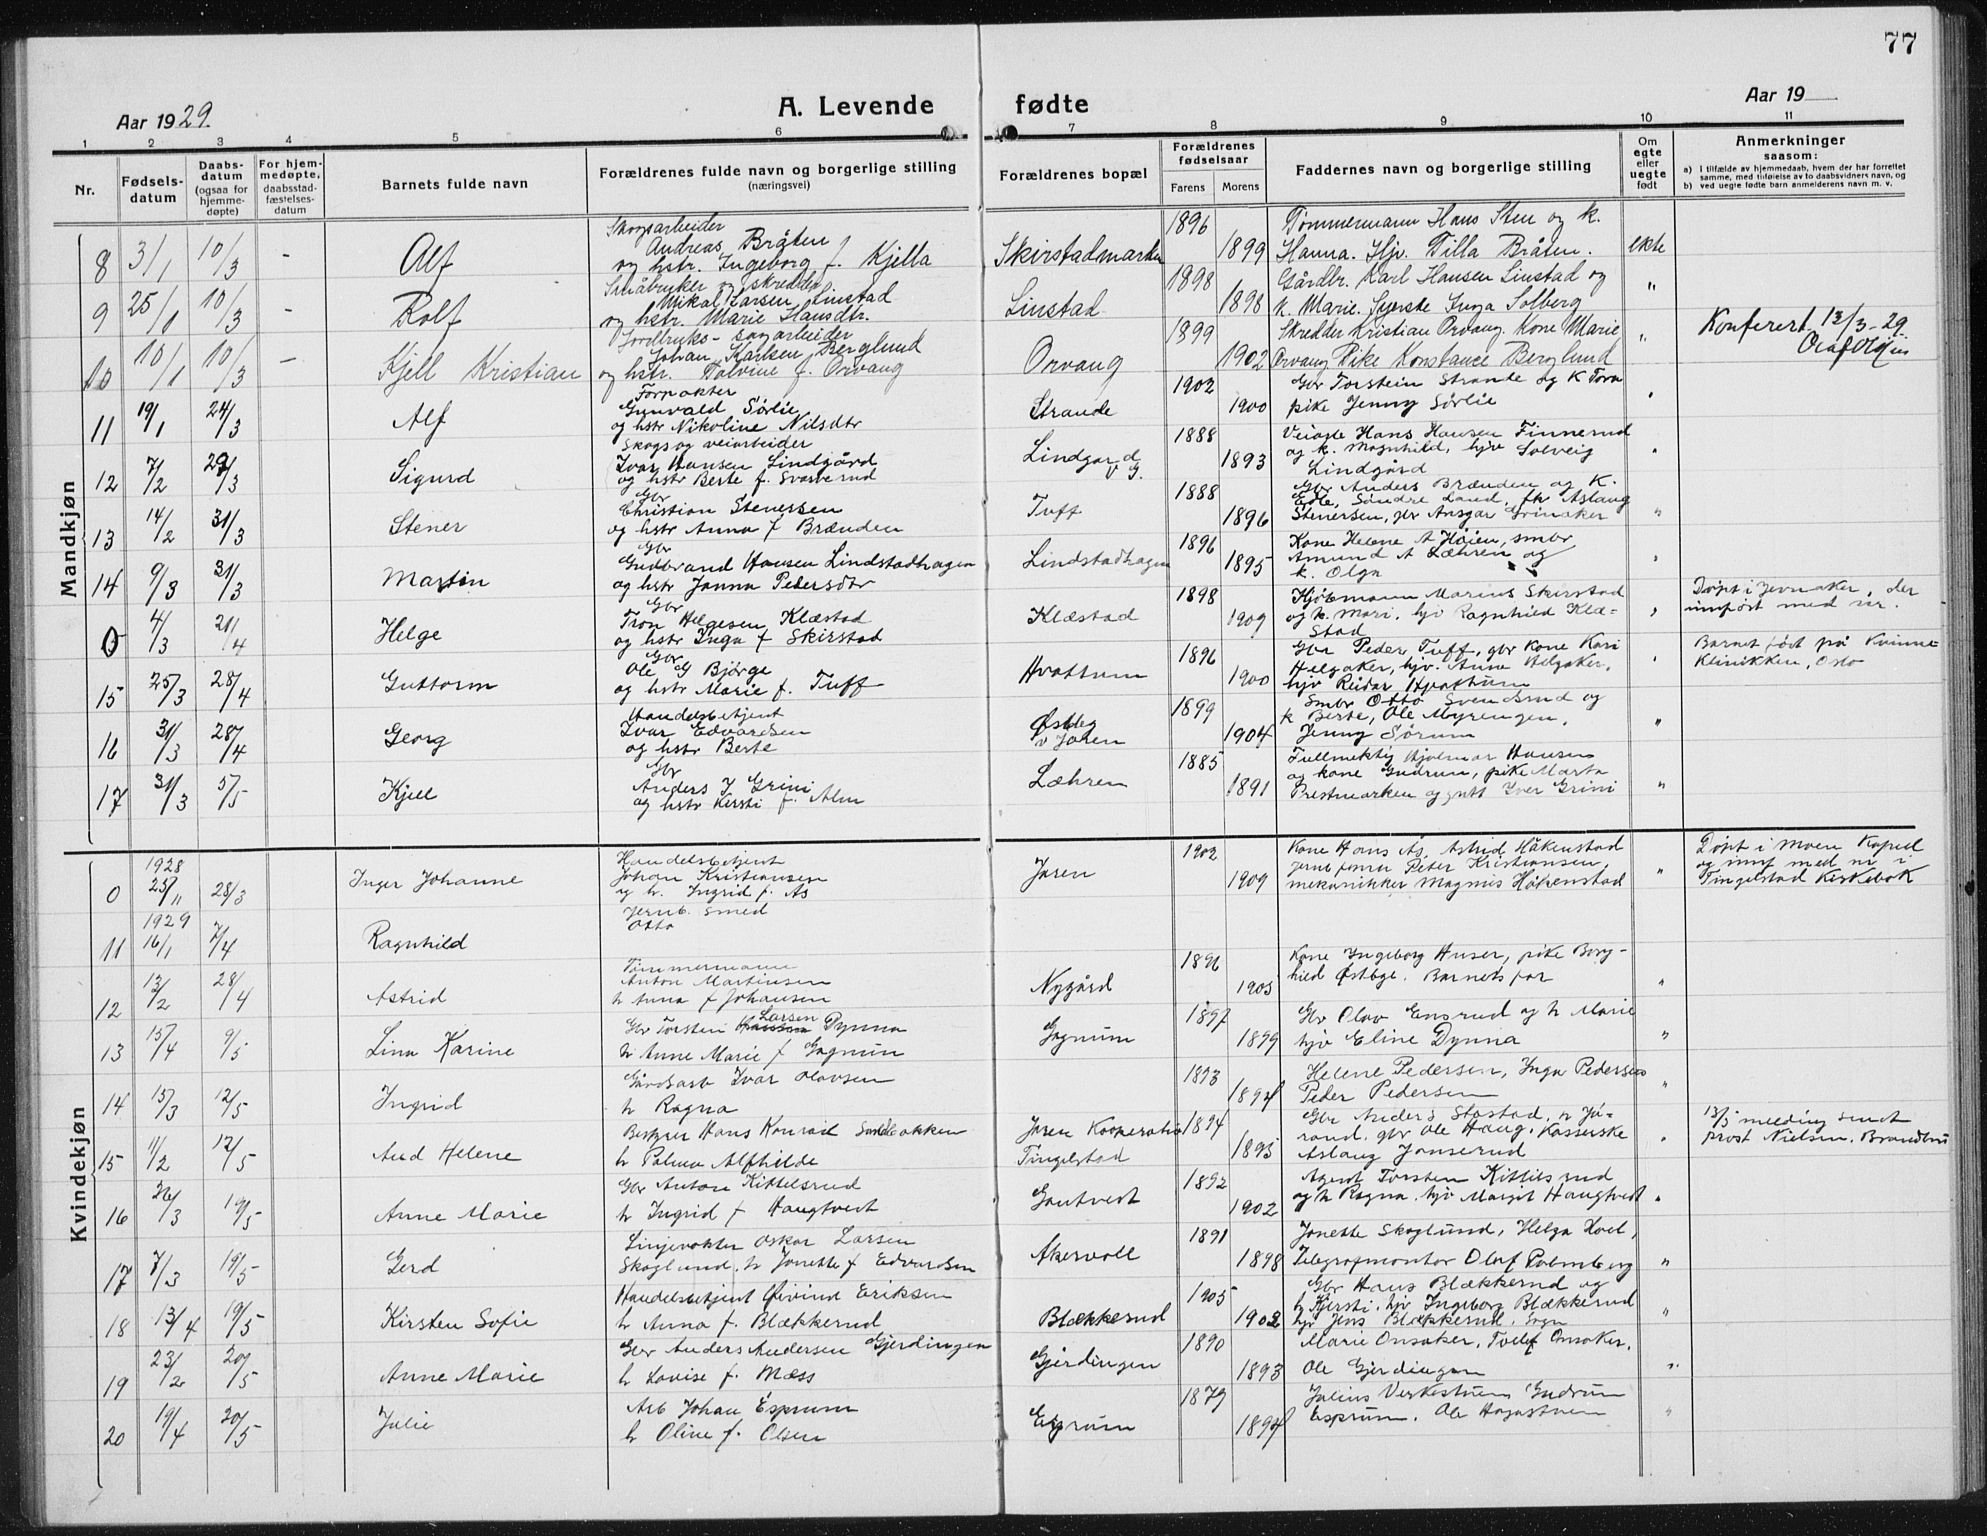 77
Aar 1929.
A. Levende fødte
Aar 19
1 2 3 4 5 6 7 8 9 10 11
Nr.
Fødsels-datum
Daabs-datum (ogsaa for hjemme-døpte)
For hjem-medøpte, daabsstad-fæstelses-datum
Barnets fulde navn
Forældrenes fulde navn og borgerlige stilling (næringsvei)
Forældrenes bopæl
Forældrenes fødselsaar
Farens Morens
Faddernes navn og borgerlige stilling
Om egte eller uegte født
Anmerkninger saasom:
a) I tilfælde av hjemmedaab, hvem der har forrettet samme, med tilføielse av to daabsvidners navn, og
b) ved uegte fødte barn anmelderens navn m. v.
Mandkjøn
8 3/1 10/3 - Alf
Skogsarbeider
Andreas Bråten
og hstr. Ingeborg f. Kjella
Skirstadmarken 1896 1899
Tømmermann Hans Sten og k.
Hanna. Hjv. Tilla Bråten. ekte
9 25/1 10/3 - Rolf
Småbruker og skredder
Mikal Larsen Linstad
og hstr. Marie Hansdtr.
Linstad 1898 1898
Gårdbr. Karl Hansen Linstad og
k. Marie. Syerske Inga Solberg "
10 10/1 10/3 - Kjell Kristian
Jordbruks- sagarbeider
Johan Karlsen Berglund
og hstr. Tolvine f. Orvang
Orvang 1899 1902
Skredder Kristian Orvang. Kone Marie
Orvang Pike Konstance Berglund "
Konferert 13/3-29.
11 19/1 24/3 Alf
Gunvald Sørlie
og hstr Nikoline Nilsdtr
Strande 1902 1900
Gbr Torstein Strande og K Tora
pike Jenny Sørlie "
12 7/2 29/3 Sigurd
Skogs og veiarbeider
Ivar Hansen Lindgård
og hstr Berte f. Svarverud
Lindgard v G. 1888 1893
Hans Hansen Finnerud
og k. Magnhild, hjv Solveig
Lindgård "
13 14/2 31/3 Stener
Gbr
Christian Stenersen
og hstr Anna f Brænden
Tuff 1888 1896
Gbr Anders Brænden og K.
Edle, Søndre Land, fr Aslaug
Stenersen, gbr Ansgar Grinaker "
14 9/3 31/3 Martin
Gbr
Gudbrand Hansen Lindstadhagen
og hstr Janna Pedersdtr
Lindstadhagen 1896 1895
Kone Helene A Høien, smbr
Amund A Læhren og
k. Olga "
0 4/3 21/4 Helge
Gbr
Tron Helgesen Klæstad
og hstr Inga f Skirstad
Klæstad 1898 1909
Kjøbmann Marius Skirstad
og k. Mari, hjv Ragnhild Klæ-
stad "
Døpt i Jevnaker, der
innført med nr.
15 25/3 28/4 Guttorm
Gbr
Ole G Bjørge
og hstr Marie f. Tuff
Hvattum 1896 1900
Gbr Peder Tuff, gbr kone Kari
Helgaker, hjv. Anne Helgaker,
hjv Reidar Hvattum "
Barnet født på Kvinne-
klinikken, Oslo
16 31/3 28/4 Georg
Handelsbetjent
Ivar Edvardsen
og hstr Berte
v Jaren 1899 1904
Smbr Otto Svendsrud og
k Berte, Ole Myrengen,
Jenny Sørum "
17 31/3 5/5 Kjell
Gbr
Anders J Grini
og hstr Kersti f. Alm
Læhren 1885 1891
Fullmektig Hjalmar Hansen
og kone Gudrun, pike Marta
Prestmarken og gutt Iver Grini "
Kvindekjøn
0 1928 25/11 28/3 Inger Johanne
Handelsbetjent
Johan Kristiansen
og h. Ingrid f. Ås
Jaren 1902 1909
Kone Hans Ås, Astrid Håkenstad
Peter Kristiansen,
mekanikker Magnus Håkenstad "
Døpt i Moen Kapel
og innf med nr i
Tingelstad Kirkebok
11 1929 16/1 7/4 Ragnhild
Jernb. smed
Otto
12 13/2 28/4 Astrid
Tømmermann
Anton Martinsen
h Anna f Johansen
Nygård 1896 1905
Kone Ingeborg Huser, pike Borg-
hild Østbye. Barnets far "
13 15/4 9/5 Lina Karine
Gbr Torsten Larsen Dynna
h Anne Marie f Gagnum
Gagnum 1897 1899
Gbr Olav Ensrud og h Marie
hjv Eline Dynna "
14 15/3 12/5 Ingrid
Gårdsarb Ivar Olavsen
h Ragna
1893 1894
Helene Pedersen, Inga Pedersen
Peder Pedersen "
15 11/2 12/5 Aud Helene
Bestyrer Hans Konrad
h Palma Alfhilde
Jaren Kooperativ
Tingelstad 1894 1895
Gbr Anders Stastad, h Jø-
rand, gbr Ole Haug. Kasserske
Aslaug Jonserud "
13/5 melding sendt
prost Nielsen, Brandbu
16 26/3 19/5 Anne Marie
Gbr Anton Kittelsrud
h Ingrid f Haugtvedt
Gautvedt 1892 1902
Agent Torsten Kittilsrud
og h Ragna, hjv Margit Haugtvedt "
17 7/3 19/5 Gerd
Linjevokter Oskar Larsen
Skoglund, h Jonette f Edvardsen
Akervoll 1891 1898
Jonette Skoglund, Helga Hoel,
Telegrafmontør Olaf Palmberg "
18 13/4 19/5 Kirsten Sofie
Handelsbetjent Øivind Eriksen
h Anna f. Blækkerud
Blækkerud 1905 1902
Gbr Hans Blækkerud og
h Kjersti, hjv Ingeborg Blækkerud
hjv Jens Blækkerud, "
19 23/2 20/5 Anne Marie
Gbr Anders Andersen Gjerdingen
h Lovise f. Mæss
Gjerdingen 1890 1893
Marie Onsaker, Tollef Onsaker,
Ole Gjerdingen "
20 19/4 20/5 Julie
Arb Johan Esprum
h Oline f. Olsen
1879 1894
Julius Gudrun
Esprum, Ole "